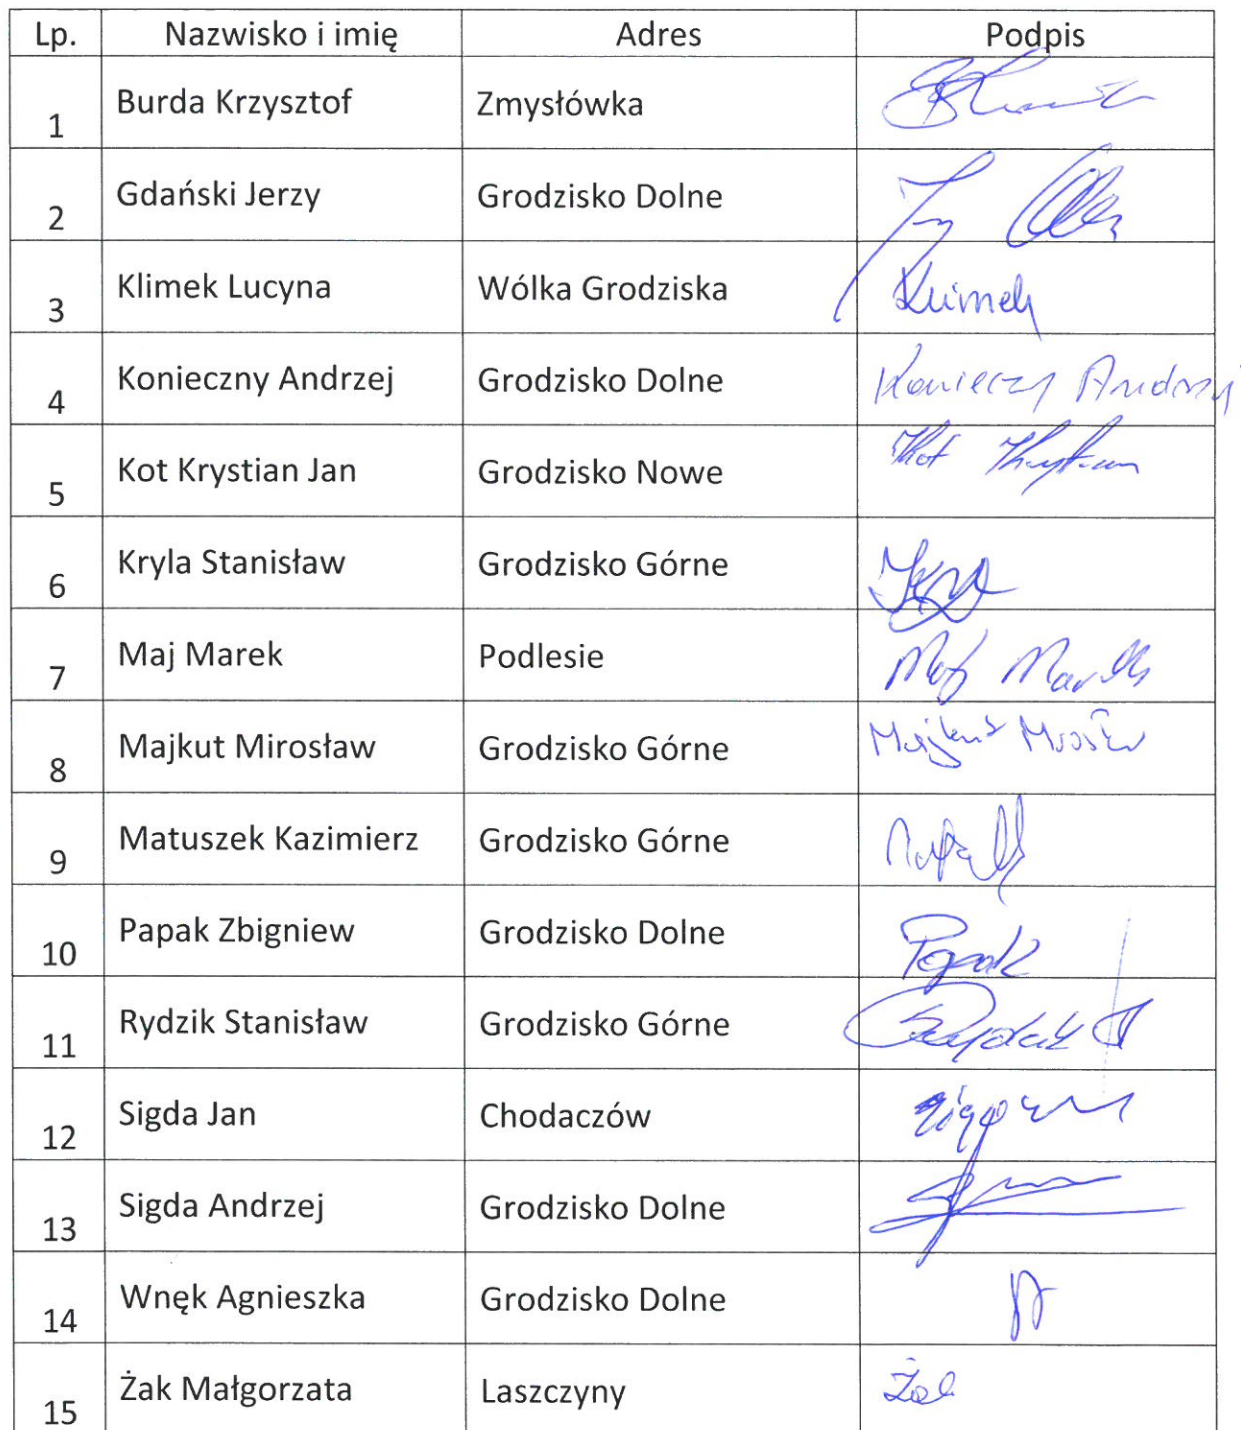 Lp. Nazwisko i imię Adres Podpis
1 Burda Krzysztof Zmysłówka
2 Gdański Jerzy Grodzisko Dolne
3 Klimek Lucyna Wólka Grodziska Klimek
4 Konieczny Andrzej Grodzisko Dolne Konieczny Andrzej
5 Kot Krystian Jan Grodzisko Nowe Kot Krystian
6 Kryla Stanisław Grodzisko Górne
7 Maj Marek Podlesie Maj Marek
8 Majkut Mirosław Grodzisko Górne Majkut Mirosław
9 Matuszek Kazimierz Grodzisko Górne
10 Papak Zbigniew Grodzisko Dolne Papak
11 Rydzik Stanisław Grodzisko Górne
12 Sigda Jan Chodaczów
13 Sigda Andrzej Grodzisko Dolne
14 Wnęk Agnieszka Grodzisko Dolne
15 Żak Małgorzata Laszczyny Żak